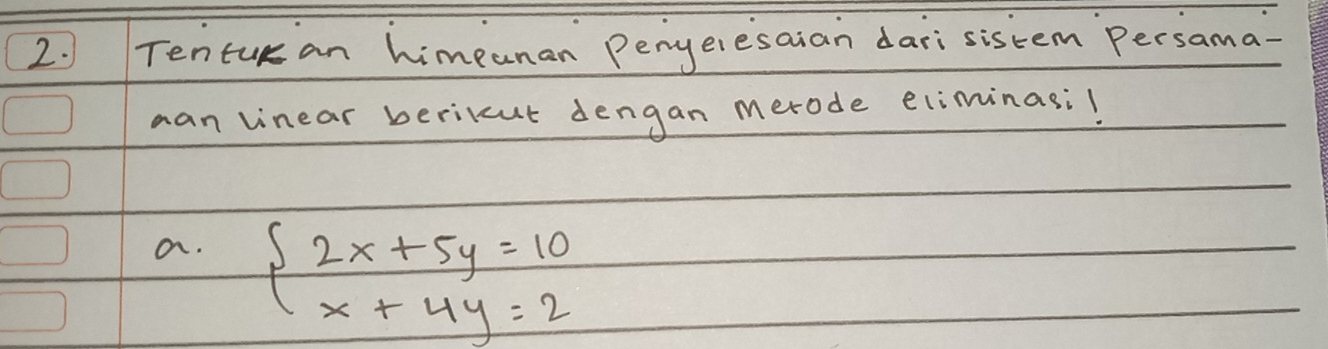 2. Tentukan himpunan Penyelesaian dari sistem Persama-
aan linear berikut dengan metode eliminasi!
a. { 2x + 5y = 10
x + 4y = 2